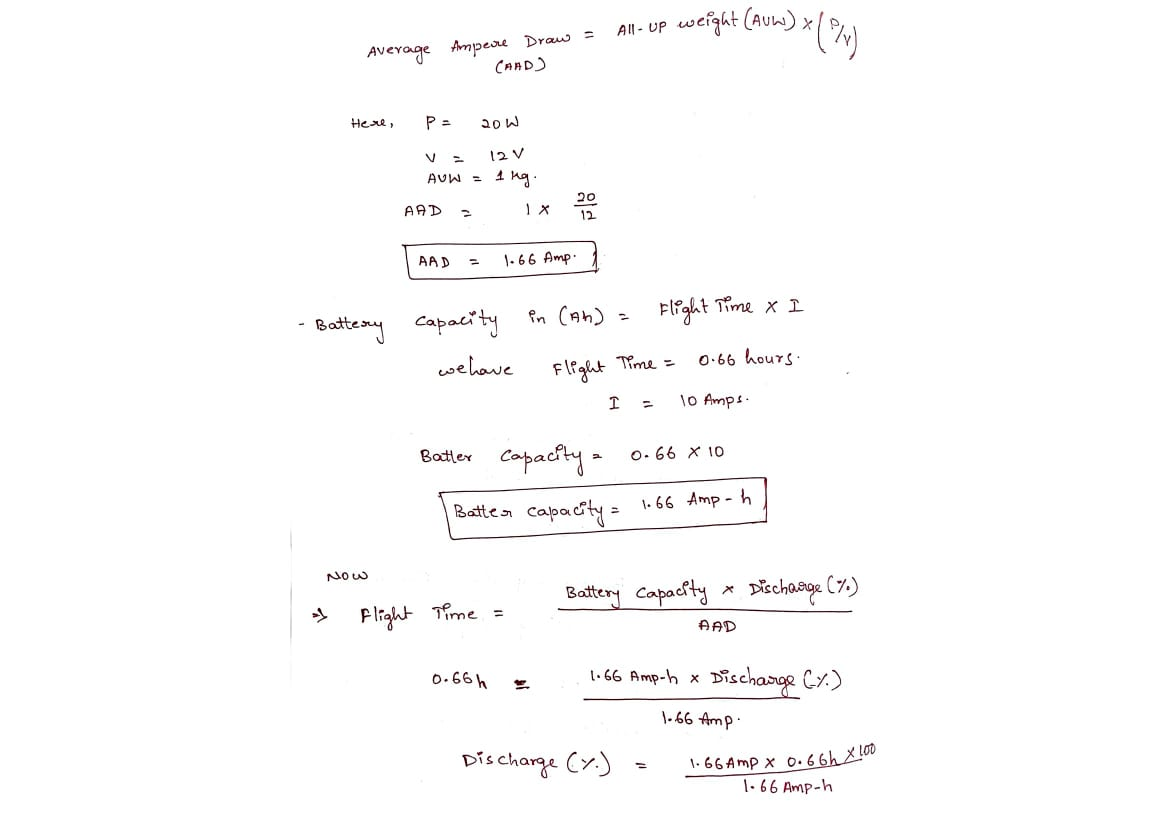 Average Ampere Draw = All-UP weight (AUW) × (P/V)
(AAD)
Here, P = 20 W
V = 12 V
AUW = 1 kg.
AAD = 1 × 20/12
AAD = 1.66 Amp.
- Battery capacity in (Ah) = Flight Time × I
we have Flight Time = 0.66 hours.
I = 10 Amps.
Batter capacity = 0.66 × 10
Batter capacity = 1.66 Amp-h
NOW
⇒ Flight Time = Battery capacity × Discharge (%) / AAD
0.66h = 1.66 Amp-h × Discharge (%) / 1.66 Amp.
Discharge (%) = 1.66 Amp × 0.66h × 100 / 1.66 Amp-h